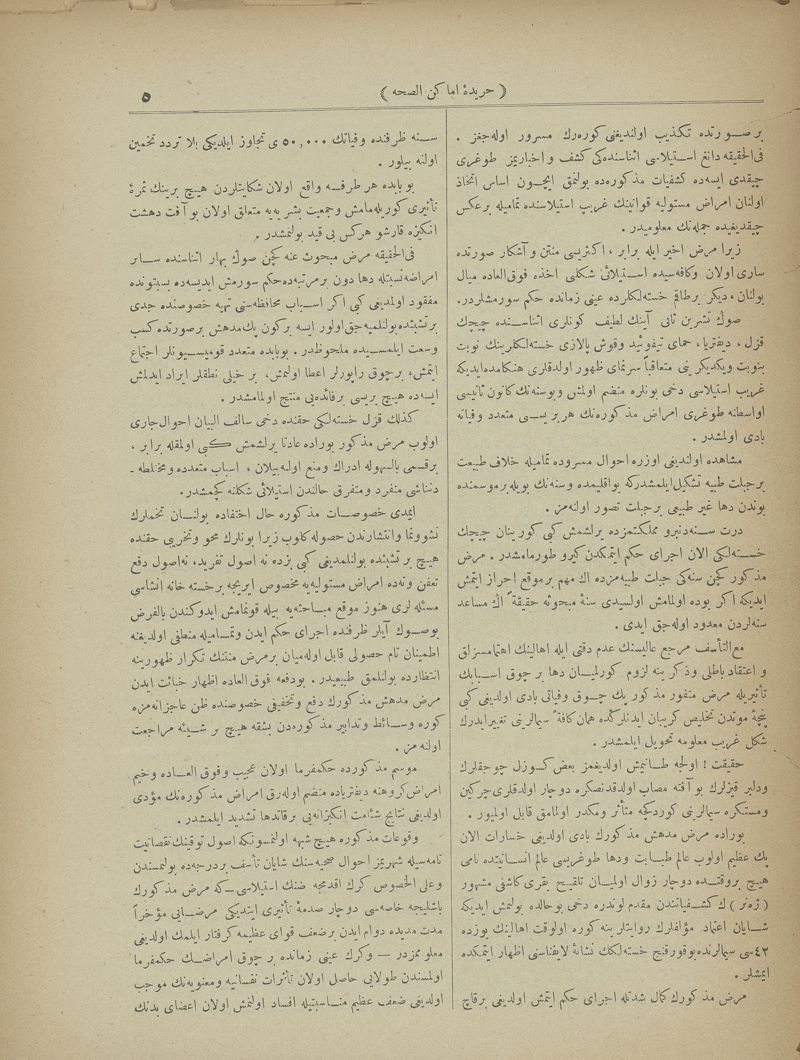 ﴿ جریدهٔ اماکن الصحه ﴾
٥
بر صورتده تکذیب اولندیغنی کوره‌رك مسرور اوله جغز .
فی الحقیقه دانغ استیلاسی اثناسنده‌کی کشف و اخباریمز طوغری
چیقدی ایسه‌ده کشفیات مذکوره‌ده بولنمق ایچون اساس اتخاذ
اولنان امراض مستولیه قوانینك غریپ استیلاسنده تمامیله برعکس
چیقدیغیده جمله‌نك معلومیدر .
زیرا مرض اخیر ایله برابر ، اکثریسی منتن و آشکار صورتده
ساری اولان وکافه‌سیده استیلائی شکلی اخذه فوق‌العاده میال
بولنان ، دیکر برطاقم خسته‌لکلرده عینی زمانده حکم سورمشلردر .
صوك تشرین ثانی آینك لطیف کونلری اثناسنده چیچك
قزل ، دیفتریا ، حمای تیفوئید وقوش پالازی خسته‌لکلرینك نوبت
بنوبت ویکدیکرینی متعاقباً سرنمای ظهور اولدقلری هنکامده‌ایدیکه
غریپ استیلاسی دخی بونلره منضم اولمش وبوسنه‌نك کانون ثانیسی
اواسطنه طوغری امراض مذکوره‌نك هر بریسی متعدد وفیاته
بادی اولمشدر .
مشاهده اولندیغی اوزره احوال مسروده تمامیله خلاف طبیعت
برجبلت طبیه تشکیل ایلمشدرکه بواقلیمده وسنه‌نك بویله برموسمنده
بوندن دها غیر طبیعی برجبلت تصور اولنه‌مز .
درت سنه‌دنبرو مملکتمزده یرلشمش کبی کورینان چیچك
خسته‌لکی الان اجرای حکم ایتمکدن کیرو طورمامشدر . مرض
مذکور کچن سنه‌کی جبلت طبیه‌مزده اك مهم برموقع احراز ایتمش
ایدیکه اکر بوده اولمامش اولسیدی سنهٔ مبحوثه حقیقةً اك مساعد
سنه‌لردن معدود اوله‌جق ایدی .
مع‌التأسف مرجع عالیسنك عدم دقتی ایله اهالینك اهتمامسزلق
و اعتقاد باطلی وذکرینه لزوم کورلمیان دها بر چوق اسبابك
تأثیریله مرض منفور مذکور پك چوق وفیاتی بادی اولدیغی کبی
پنچهٔ موتدن تخلیص کریبان ایدنلرکده همان کافةً سیمالرینی تغییر ایدرك
شکل غریب معلومه تحویل ایلمشدر .
حقیقت ! اولجه طانیمش اولدیغمز بعض کوزل چوجقلرك
ودلبر قیزلرك بو آفته مصاب اولدقدنصکره دوچار اولدقلری چرکین
ومستکره سیمالرینی کوردکجه متأثر ومکدر اولمامق قابل اولمیور .
بوراده مرض مدهش مذکورك بادی اولدیغی خسارات الان
پك عظیم اولوب عالم طبابت ودها طوغریسی عالم انسانیتده نامی
هیچ بروقتده دوچار زوال اولمیان تلقیح بقری کاشفی مشهور
( ژه‌نر ) ك کشفیاتندن مقدم لوندره دخی بوحالده بولنمش ایدیکه
شایان اعتماد مؤلفلرك روایتلرینه کوره اولوقت اهالینك یوزده
٤٢سی سیمالرنده بوقورقنج خسته‌لکك نشانهٔ لایفناسنی اظهار ایتمکده
ایمشلر .
مرض مذکورك کمال شدتله اجرای حکم ایتمش اولدیغی برقاچ
سنه ظرفنده وفیاتك ٥٠,٠٠٠ ی تجاوز ایلدیکی بلا تردد تخمین
اولنه بیلور .
بو بابده هر طرفه واقع اولان شکایتلردن هیچ برینك ثمرهٔ
تأثیری کوریله‌مامش وجمعیت بشریه‌یه متعلق اولان بو آفت دهشت
انکیزه قارشو هرکس بی قید بولنمشدر .
فی‌الحقیقه مرض مبحوث عنه کچن صوك بهار اثناسنده سائر
امراضه نسبتله دها دون برمرتبه‌ده حکم سورمش ایدیسه‌ده بسبتونده
مفقود اولمدیغی کبی اکر اسباب محافظه‌سنی تهیه خصوصنده جدی
برتشبثده بولنلمیه‌جق‌اولور ایسه برکون پك مدهش برصورتده کسب
وسعت ایلمسیده ملحوظدر . بوبابده متعدد قومیسیونلر اجتماع
ایتمش ، برچوق راپورلر اعطا اولنمش ، بر خیلی نطقلر ایراد ایدلمش
ایسه‌ده هیچ بریسی برفائده‌یی منتج اولمامشدر .
کذلك قزل خسته‌لکی حقنده دخی سالف البیان احوال‌جاری
اولوب مرض مذکور بوراده عادتا یرلشمش کبی اولمقله برابر ،
برقسمی بالسهوله ادراك ومنع اولنه‌بیلان ، اسباب متعدده ومختلطه -
دن‌ناشی منفرد ومتفرق حالندن استیلائی شکلنه کچمشدر .
ایمدی خصوصات مذکوره حال اختفاده بولنان تخملرك
نشوونما وانتشارندن حصوله کلوب زیرا بونلرك محو وتخریبی حقنده
هیچ بر تشبثده بولنلمدیغی کبی بزده نه اصول تفرید ، نه‌اصول دفع
تعفن ونه‌ده امراض مستولیه‌یه مخصوص ایریجه برخسته خانه انشاسی
مسئله‌لری هنوز موقع مباحثه‌یه بیله قونمامش ایدوکندن بالفرض
بوصوك آیلر ظرفنده اجرای حکم ایدن وتمامیله منطفی اولدیغنه
اطمینان تام حصولی قابل اوله‌میان برمرض منتنك تکرار ظهورینه
انتظارده بولنلمق طبیعیدر . بودفعه فوق العاده اظهار خباثت ایدن
مرض مدهش مذکورك دفع وتخفیفی خصوصنده ظن عاجزانه‌مزه
کوره وسائط وتدابیر مذکوره‌دن بشقه هیچ بر شیئه مراجعت
اولنه مز .
موسم مذکورده حکمفرما اولان عجیب وفوق العاده وخیم
امراض‌کروهنه دیفتریاده منضم اوله‌رق امراض مذکوره‌نك مؤدی
اولدیغی نتایج شئامت انکیزانه‌یی برقاتدها تشدید ایلمشدر .
وقوعات مذکوره هیچ شبهه اولنمسونکه اصول توقینك نقصانیت
تامه‌سیله شهریمز احوال صحیه‌سنك شایان تأسف بردرجه‌ده بولنمسندن
وعلی الخصوص کرك اقدمجه ضنك استیلاسی ــ که مرض مذکورك
باشلیجه خاصه‌سی دوچار صدمهٔ تأثیری ایتدیکی مرضایی مؤخراً
مدت مدیده دوام ایدن برضعف قوای عظیمه کرفتار ایلمك اولدیغی
معلومزدر — وکرك عینی زمانده بر چوق امراضك حکمفرما
اولمسندن طولایی حاصل اولان تأثرات نفسانیه ومعنویه‌نك موجب
اولدیغی ضعف عظیم مناسبتیله افساد اولنمش اولان اعضای بدنك